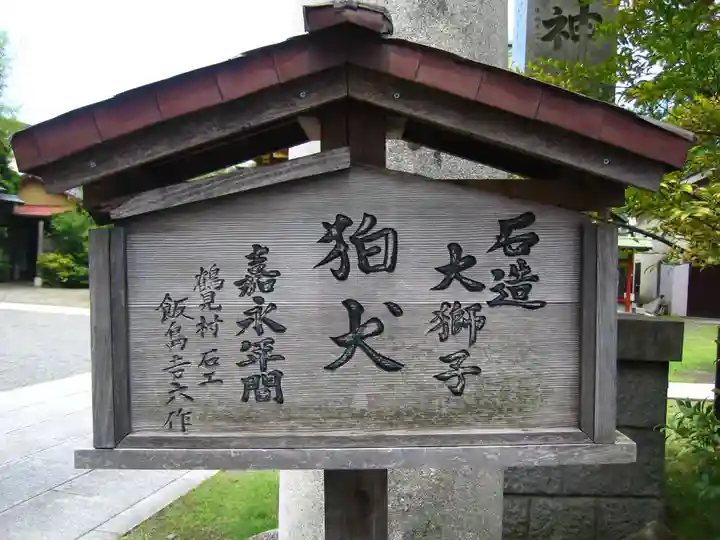 石造
大獅子
狛犬
嘉永年間
鶴見村 石工
飯島吉六作
神